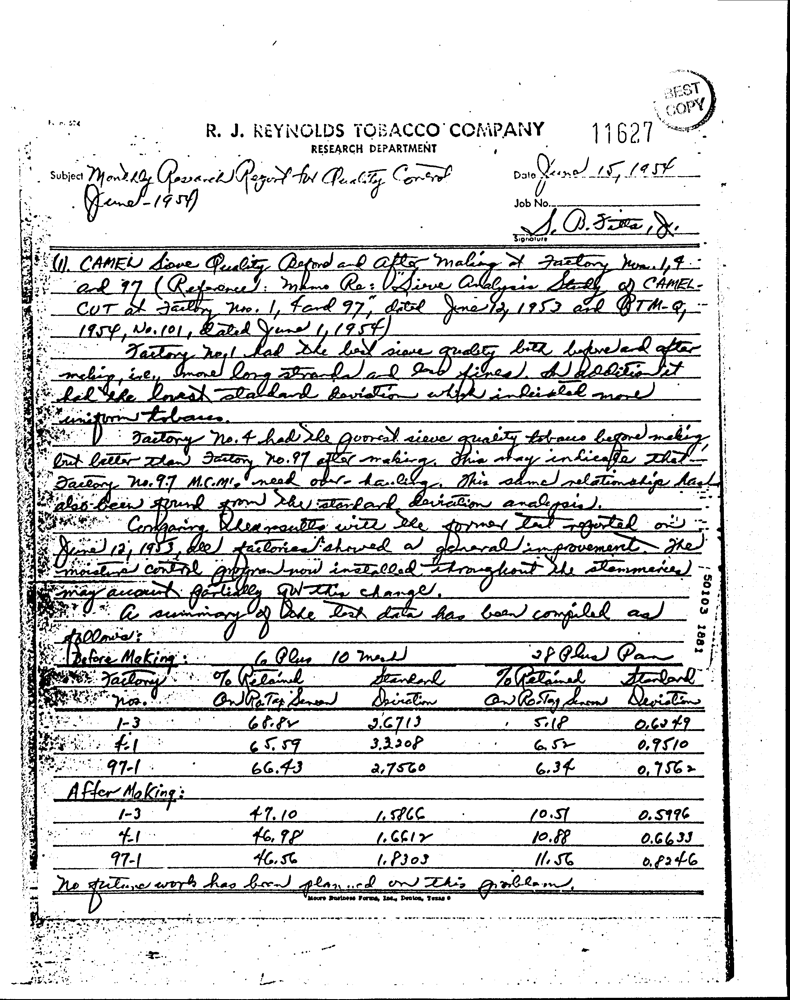 BEST
COPY
R. J. REYNOLDS TOBACCO COMPANY
11627
RESEARCH DEPARTMENT
Subject Monthly Research Report for Quality Control
Date June 15, 1954
(June-1954)
Job No.
S. B. Fitts, Jr.
Signature
(1). CAMEL Sieve Quality Before and After Making at Factory Nos. 1, 4
and 97 (Reference: Memo Re: "Sieve Analysis Study of CAMEL-
CUT at Factory Nos. 1, 4 and 97", dated June 12, 1953 and QTM-Q,
1954, No. 101, dated June 1, 1954)
Factory No. 1 had the best sieve quality both before and after
making, i.e., more long strands and less fines. In addition it
had the lowest standard deviation which indicated more
uniform tobacco.
Factory No. 4 had the poorest sieve quality tobacco before making
but better than Factory No. 97 after making. This may indicate that
Factory No. 97 M.C.M.s need over-hauling. This same relationship has
also been found from the standard deviation analysis.
Comparing these results with the former test reported on
June 12, 1953, all factories showed a general improvement. The
moisture control program now installed throughout the stemmeries
may account partially for this change.
A summary of the test data has been compiled as
follows:
50103 1881
Before Making: 6 Plus 10 mesh 28 Plus Pan
Factory % Retained Standard % Retained Standard
Nos. On RoTap Screen Deviation On RoTap Screen Deviation
1-3 68.82 2.6713 5.18 0.6249
4-1 65.59 3.3208 6.52 0.9510
97-1 66.43 2.7560 6.34 0.7562
After Making:
1-3 47.10 1.5866 10.51 0.5996
4-1 46.98 1.6612 10.88 0.6633
97-1 46.56 1.8303 11.56 0.8246
No future work has been planned on this problem.
Moore Business Forms, Inc., Denton, Texas